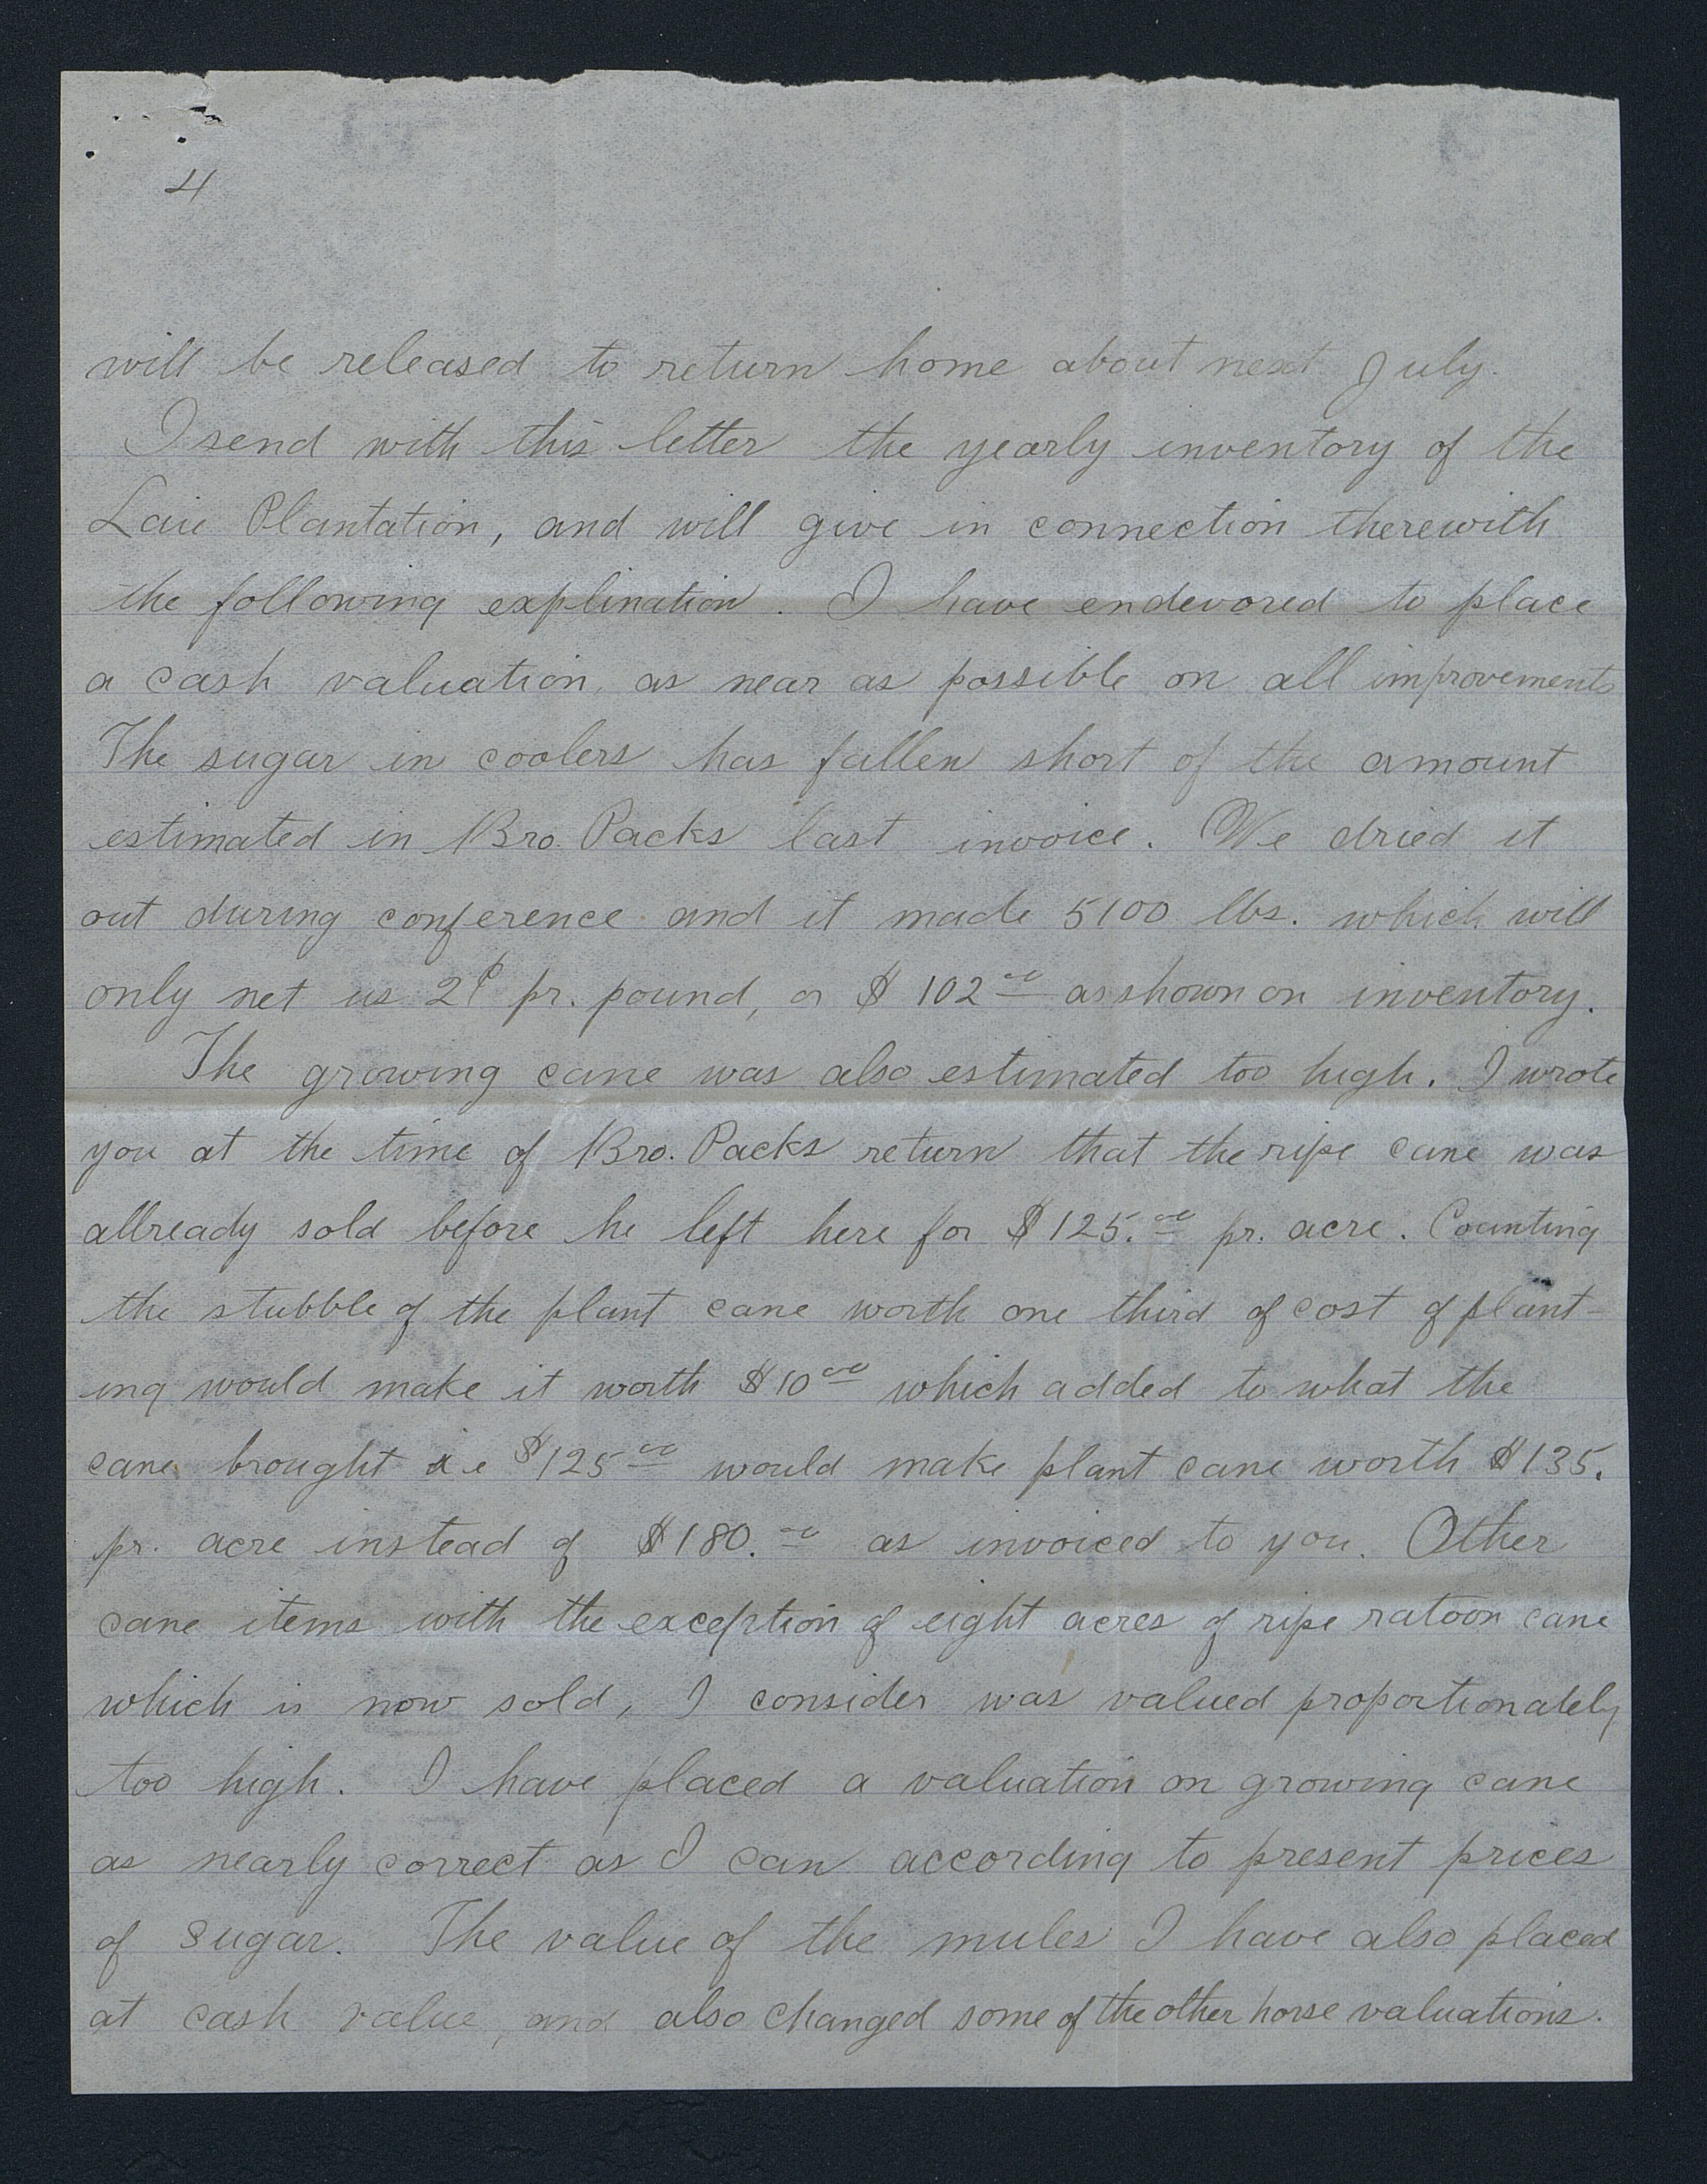 4
will be released to return home about next July.
I send with this letter the yearly inventory of the
Laie Plantation, and will give in connection therewith
the following explination. I have endevored to place
a cash valuation, as near as possible on all improvements
The sugar in coolers has fallen short of the amount
estimated in Bro. Packs last invoice. We dried it
out during conference and it made 5100 lbs. which will
only net us 2¢ pr. pound, or $102.00 as shown on inventory.
The growing cane was also estimated too high. I wrote
you at the time of Bro. Packs return that the ripe cane was
allready sold before he left here for $125.00 pr. acre. Counting
the stubble of the plant cane worth one third of cost of plant-
ing would make it worth $10.00 which added to what the
cane brought i.e $125.00 would make plant cane worth $135.
pr. acre instead of $180.00 as invoiced to you. Other
cane items with the exception of eight acres of ripe ratoon cane
which is now sold, I consider was valued proportionately
too high. I have placed a valuation on growing cane
as nearly correct as I can according to present prices
of sugar. The value of the mules I have also placed
at cash value, and also changed some of the other horse valuations.